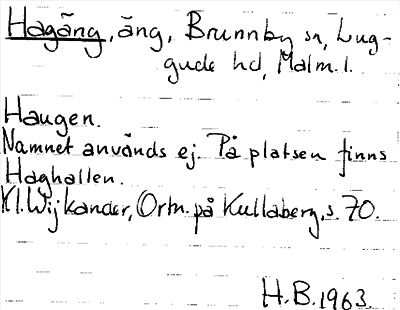 Hagäng, äng, Brunnby sn, Lug-
gude hd, Malm. l.
Haugen.
Namnet används ej. På platsen finns
Haghallen.
Kl. Wijkander, Ortn. på Kullaberg, s. 70.
H.B. 1963.